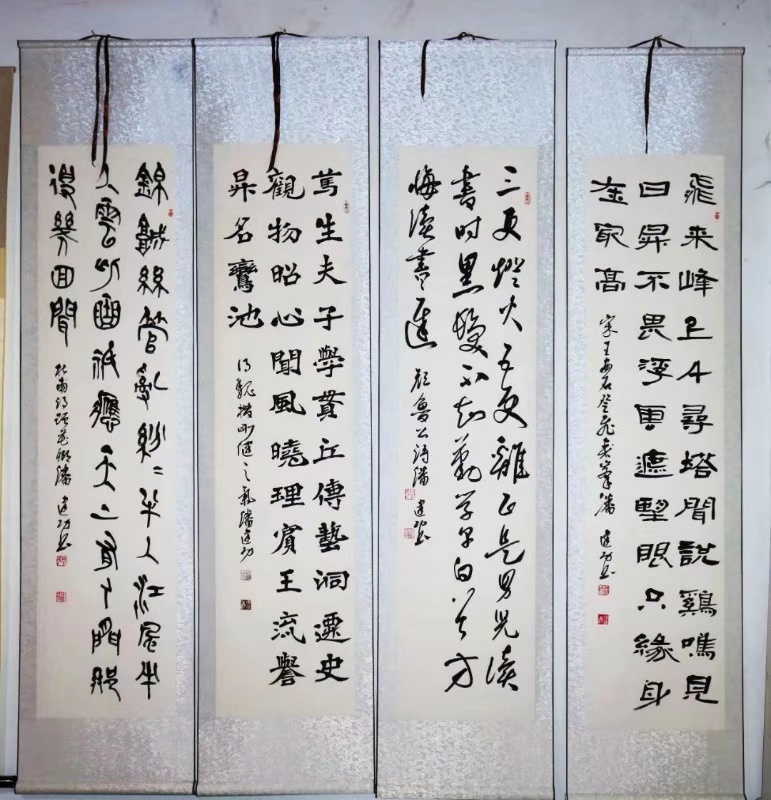 飛来峰上千尋塔聞說鷄鳴見
日昇不畏浮雲遮望眼只緣身
在最高
宋王安石登飛来峯潘建功書
三更燈火五更雞正是男児讀
書時黑髮不知勤学早白首方
悔讀書遲
顏魯公詩潘建功書
篤生夫子學貫丘傳藝洞遷史
觀物昭心聞風曉理賓王流譽
昇名鸞池
得魏楷剛健之氣潘建功
錦城絲管乱紛〻半入江風半
入雲此曲祇應天上有人間能
得幾回聞
杜甫詩贈花卿潘建功書